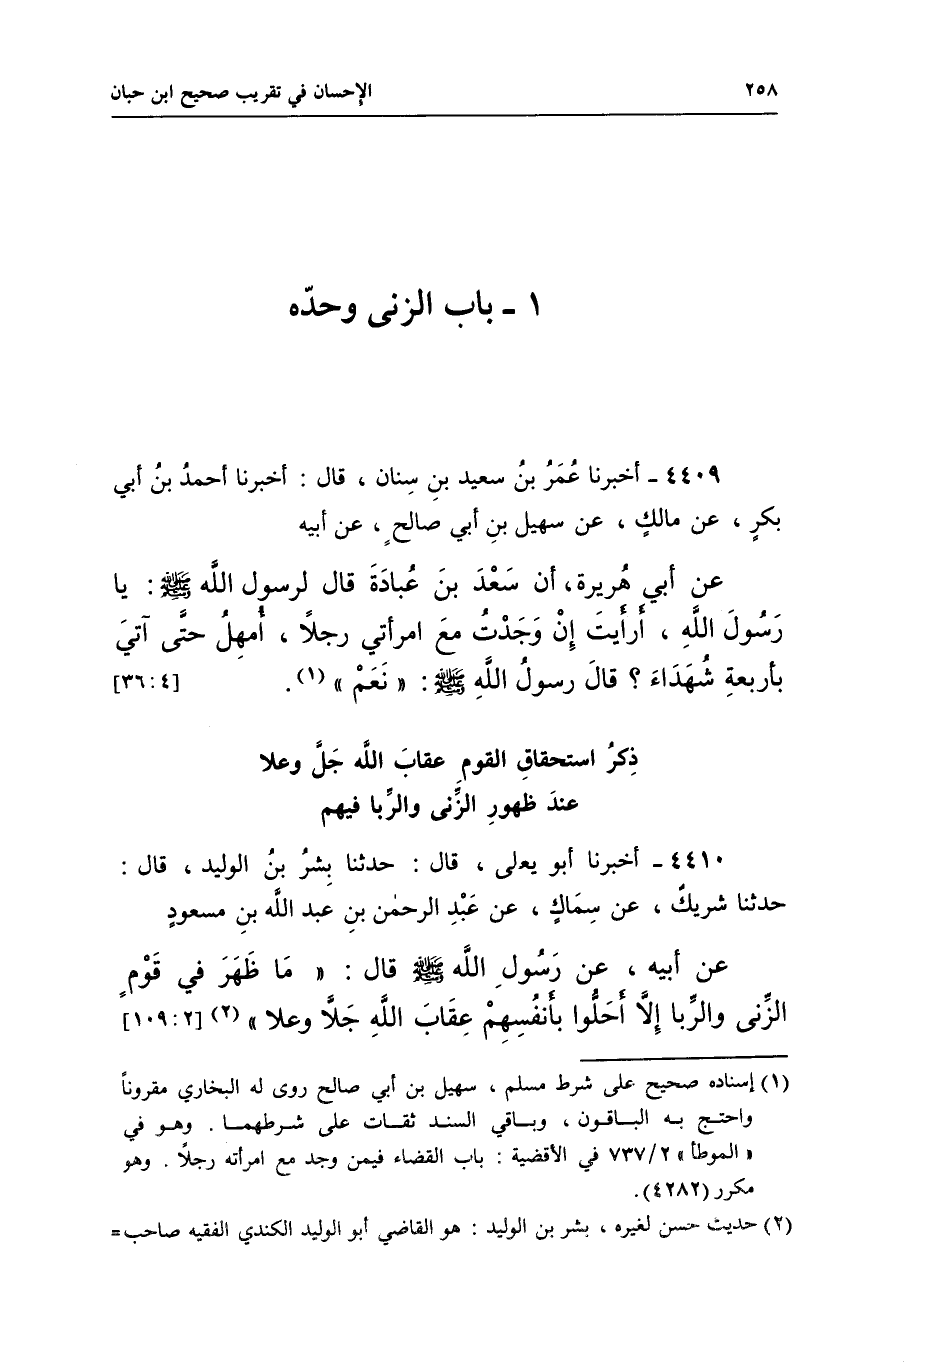 ٢٥٨
الإحسان في تقريب صحيح ابن حبان
١ ـ باب الزنى وحدّه
٤٤٠٩ ـ أخبرنا عُمَرُ بنُ سعيد بنِ سِنان ، قال : أخبرنا أحمدُ بنُ أبي
بكرٍ ، عن مالكٍ ، عن سهيل بنِ أبي صالحٍ ، عن أبيه
عن أبي هُريرة، أن سَعْدَ بنَ عُبادَةَ قال لرسول اللَّه ﷺ : يا
رَسُولَ اللَّهِ ، أَرأَيتَ إِنْ وَجَدْتُ معَ امرأتي رجلاً ، أُمهِلُ حتَّى آتيَ
بأربعةِ شُهَدَاءَ ؟ قالَ رسولُ اللَّهِ ﷺ : « نَعَمْ » (١) . [٤ : ٣٦]
ذِكرُ استحقاقِ القومِ عقابَ اللَّه جَلَّ وعلا
عندَ ظهورِ الزِّنى والرِّبا فيهم
٤٤١٠ ـ أخبرنا أبو يعلى ، قال : حدثنا بِشرُ بنُ الوليد ، قال :
حدثنا شريكٌ ، عن سِمَاكٍ ، عن عَبْدِ الرحمٰن بنِ عبد اللَّه بنِ مسعودٍ
عن أبيه ، عن رَسُولِ اللَّه ﷺ قال : « مَا ظَهَرَ في قَوْمٍ
الزِّنى والرِّبا إِلَّا أَحَلُّوا بأَنفُسِهِمْ عِقَابَ اللَّهِ جَلَّا وعلا » (٢) [٢ : ١٠٩]
(١) إسناده صحيح على شرط مسلم ، سهيل بن أبي صالح روى له البخاري مقروناً
واحتج به الباقون ، وباقي السند ثقات على شرطهما . وهو في
« الموطأ » ٧٣٧/٢ في الأقضية : باب القضاء فيمن وجد مع امرأته رجلاً . وهو
مكرر (٤٢٨٢).
(٢) حديث حسن لغيره ، بشر بن الوليد : هو القاضي أبو الوليد الكندي الفقيه صاحب=